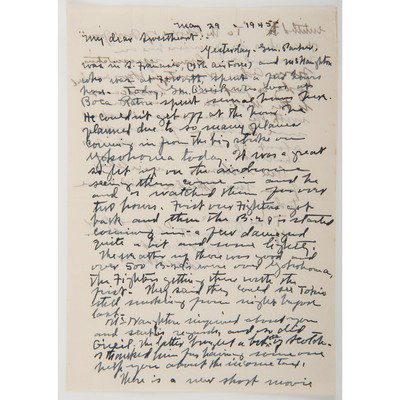 May 29 - 1945
My dear Sweetheart:-
Yesterday Gen. Parker,
was in S. Francisco, (7th air Force) and McNaughton
who was at Ft Worth, spent a few hours
here. Today, Gen. who was at
Boca Raton spent several hours here.
He couldn't get off at the hour he
planned due to so many planes
coming in from the big strike on
Yokohoma today. It was a great
sight up on the airdrome
seeing them come in and he
and I watched them for over
two hours. First our Fighters got
back and then the B-29's started
coming in - a few damaged
quite a bit and some lightly.
The weather up there was good and
over 500 B-29s were over Yokohoma,
The Fighters getting there with the
first. They said they could see Tokio
still smoking from night before
last.
McNaughton inquired about you
and sends regards, and so did
the latter brought a bottle of Scotch.
I thanked him for having someone
help you about the income tax.
There is a new short movie